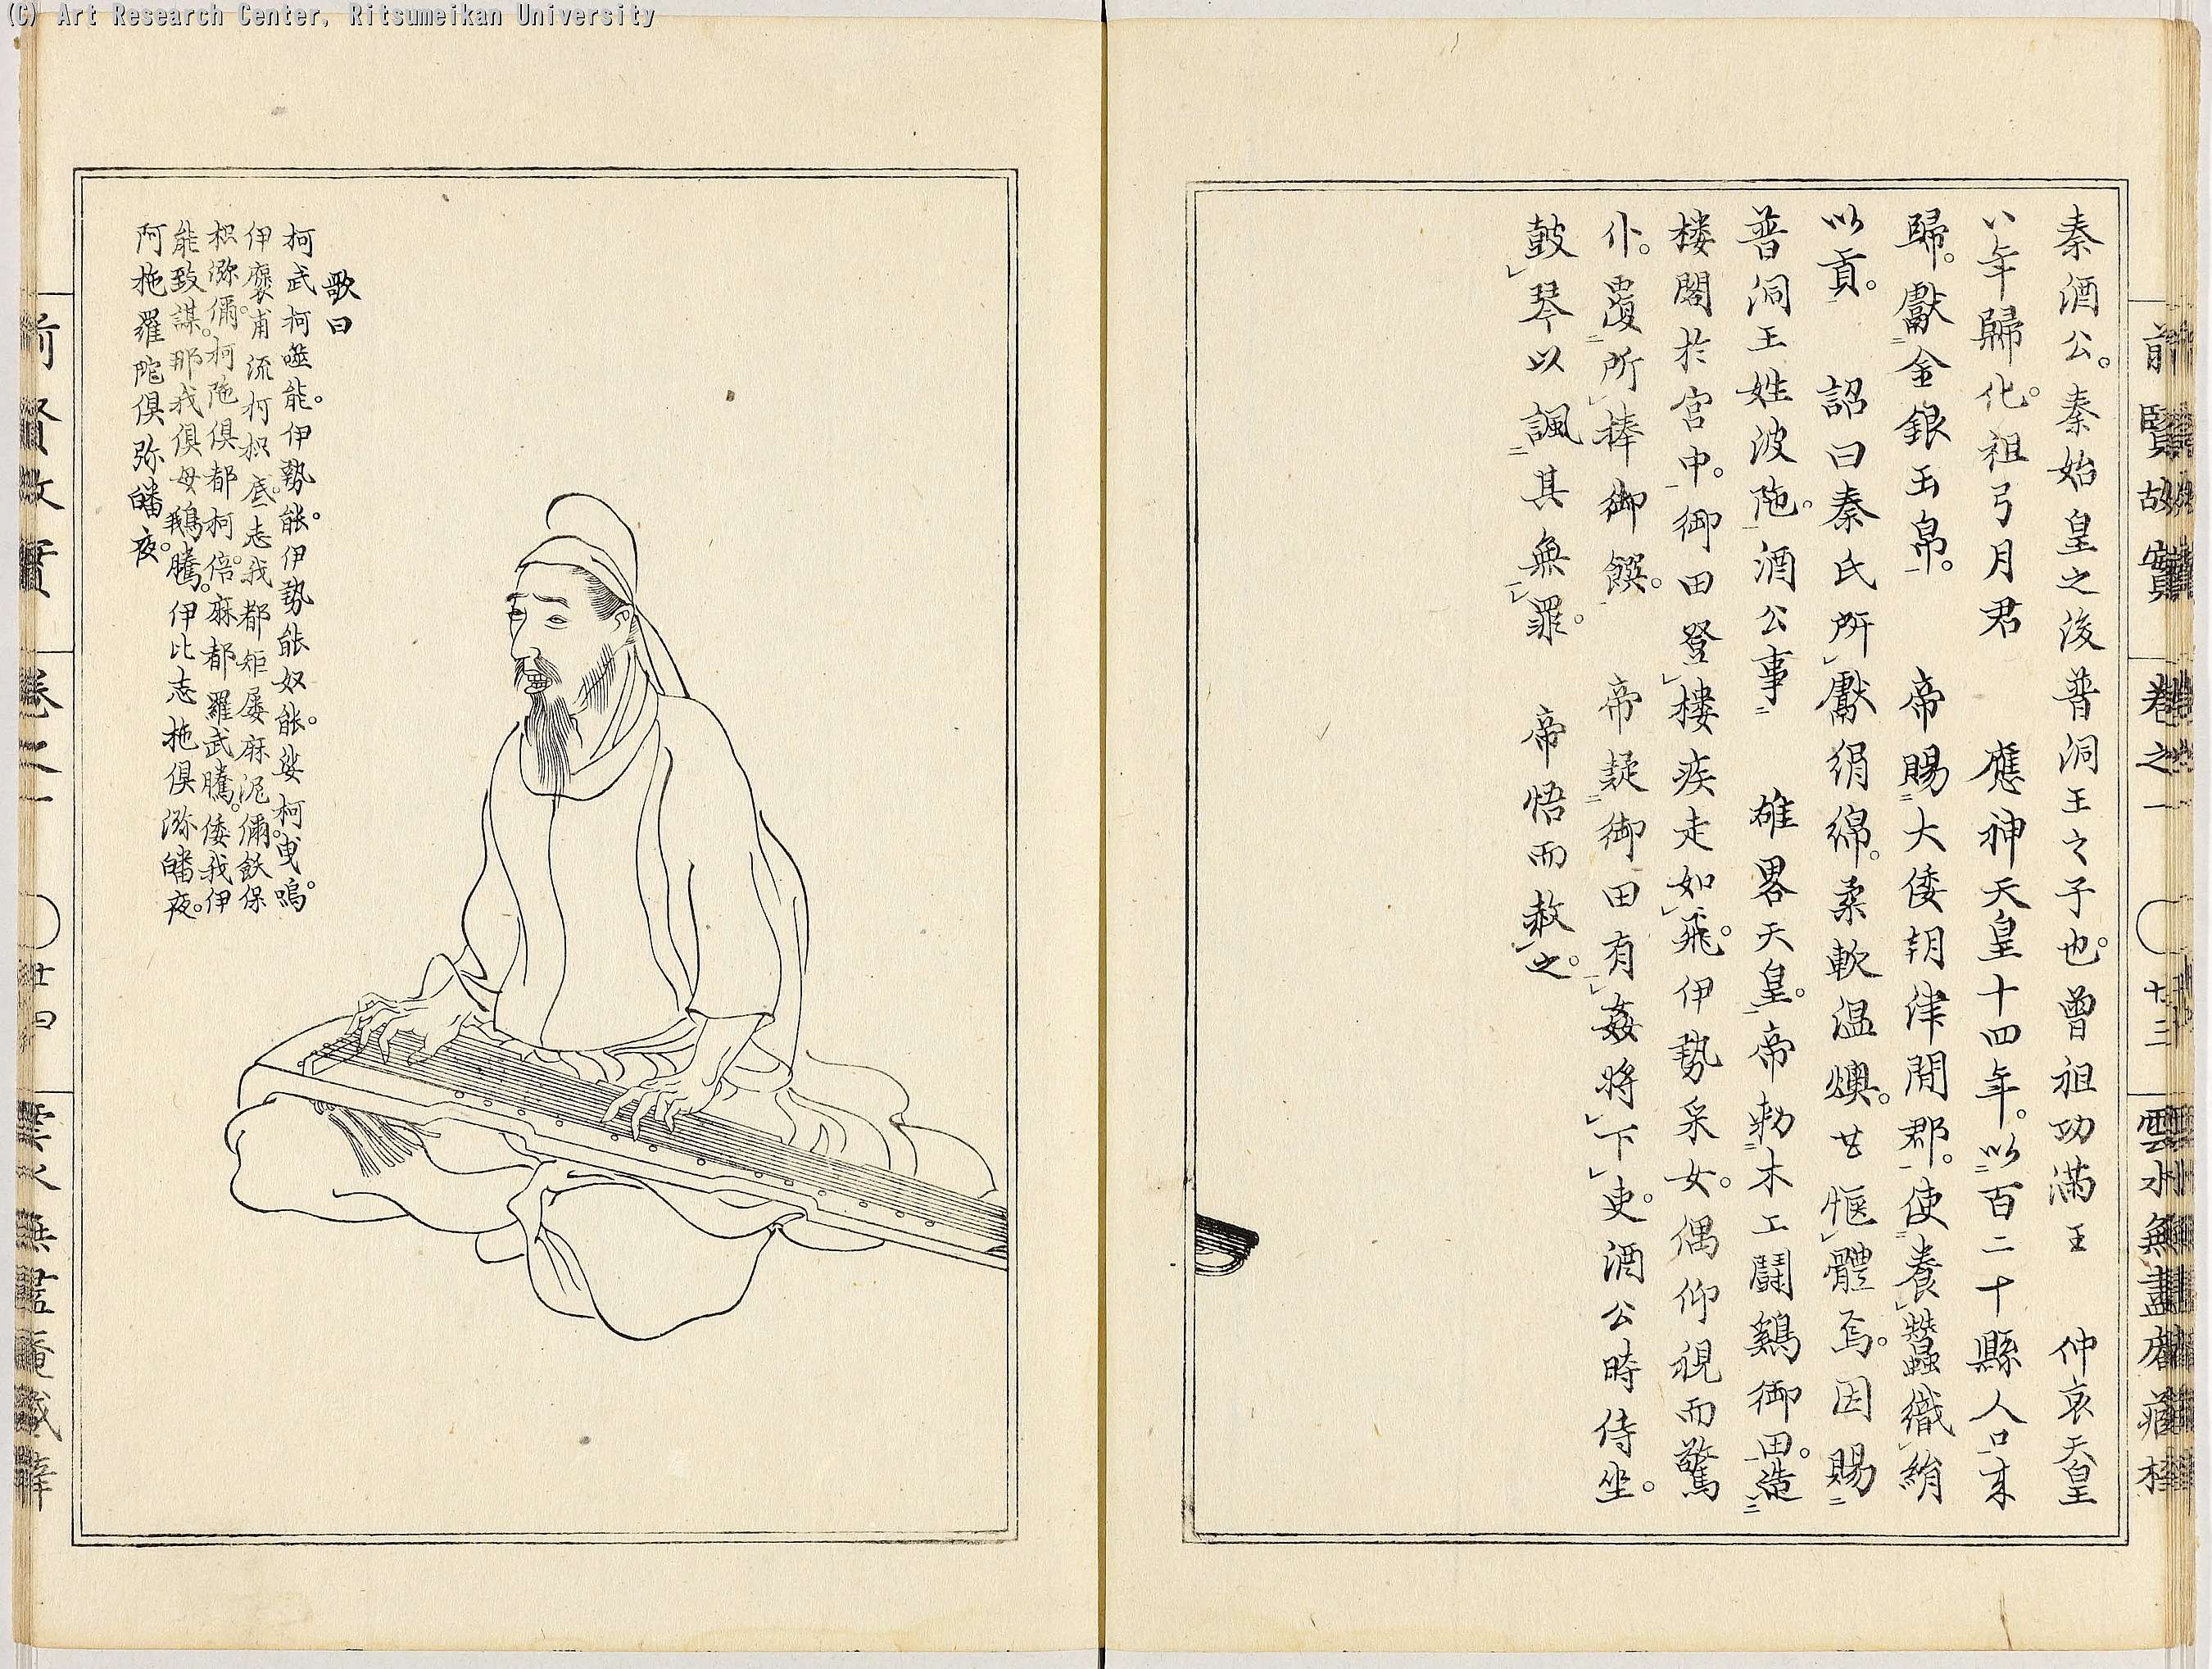 (C) Art Research Center, Ritsumeikan University
前賢故實 卷之一 〇十三
秦酒公。秦始皇之後普洞王之子也。曾祖功滿王 仲哀天皇
八年歸化。祖弓月君 應神天皇十四年。以百二十縣人口來
歸。獻金銀玉帛。 帝賜大倭朝津間郡。使養蠶織絹
以貢。 詔曰秦氏所獻絹綿。柔軟温燠。甘愜體焉。因賜
普洞王姓波陁。酒公事 雄畧天皇。帝勅木工鬪鷄御田。造
樓閣於宮中。御田登樓疾走如飛。伊勢采女。偶仰視而驚
仆。覆所捧御饌。 帝疑御田有姦將下吏。酒公時侍坐。
鼓琴以諷其無罪。 帝悟而赦之。
歌曰
柯武柯噬能。伊勢能。伊勢能奴能。娑柯曳嗚。
伊裒甫流柯枳底。志我都矩屡麻泥儞。飫保
枳瀰儞。柯陁倶都柯倍。麻都羅武騰。倭我伊
能致謀。那我倶母鵝騰。伊比志拖倶瀰皤夜。
阿拖羅陀倶弥皤夜。
前賢故實 卷之一 〇廿四